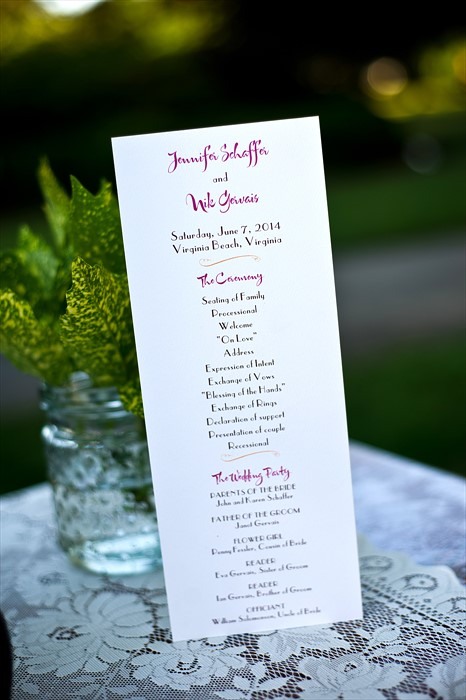 Jennifer Schaffer
and
Nik Gervais
Saturday, June 7, 2014
Virginia Beach, Virginia
The Ceremony
Seating of Family
Processional
Welcome
"On Love"
Address
Expression of Intent
Exchange of Vows
"Blessing of the Hands"
Exchange of Rings
Declaration of support
Presentation of couple
Recessional
The Wedding Party
PARENTS OF THE BRIDE
John and Karen Schaffer
FATHER OF THE GROOM
Janet Gervais
FLOWER GIRL
Penny Fessler, Cousin of Bride
READER
Eva Gervais, Sister of Groom
READER
Ian Gervais, Brother of Groom
OFFICIANT
William Solomonson, Uncle of Bride